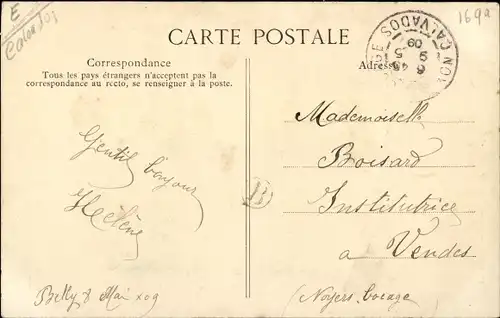 E
Calvados
169a
CARTE POSTALE
Correspondance
Tous les pays étrangers n'acceptent pas la
correspondance au recto, se renseigner à la poste.
Adresse
CALVADOS
6 45
9 5
09
Gentil bonjour
Hélène
Billy 8 Mai x09
Mademoiselle
Boisard
Institutrice
a Vendes
(Noyers bocage